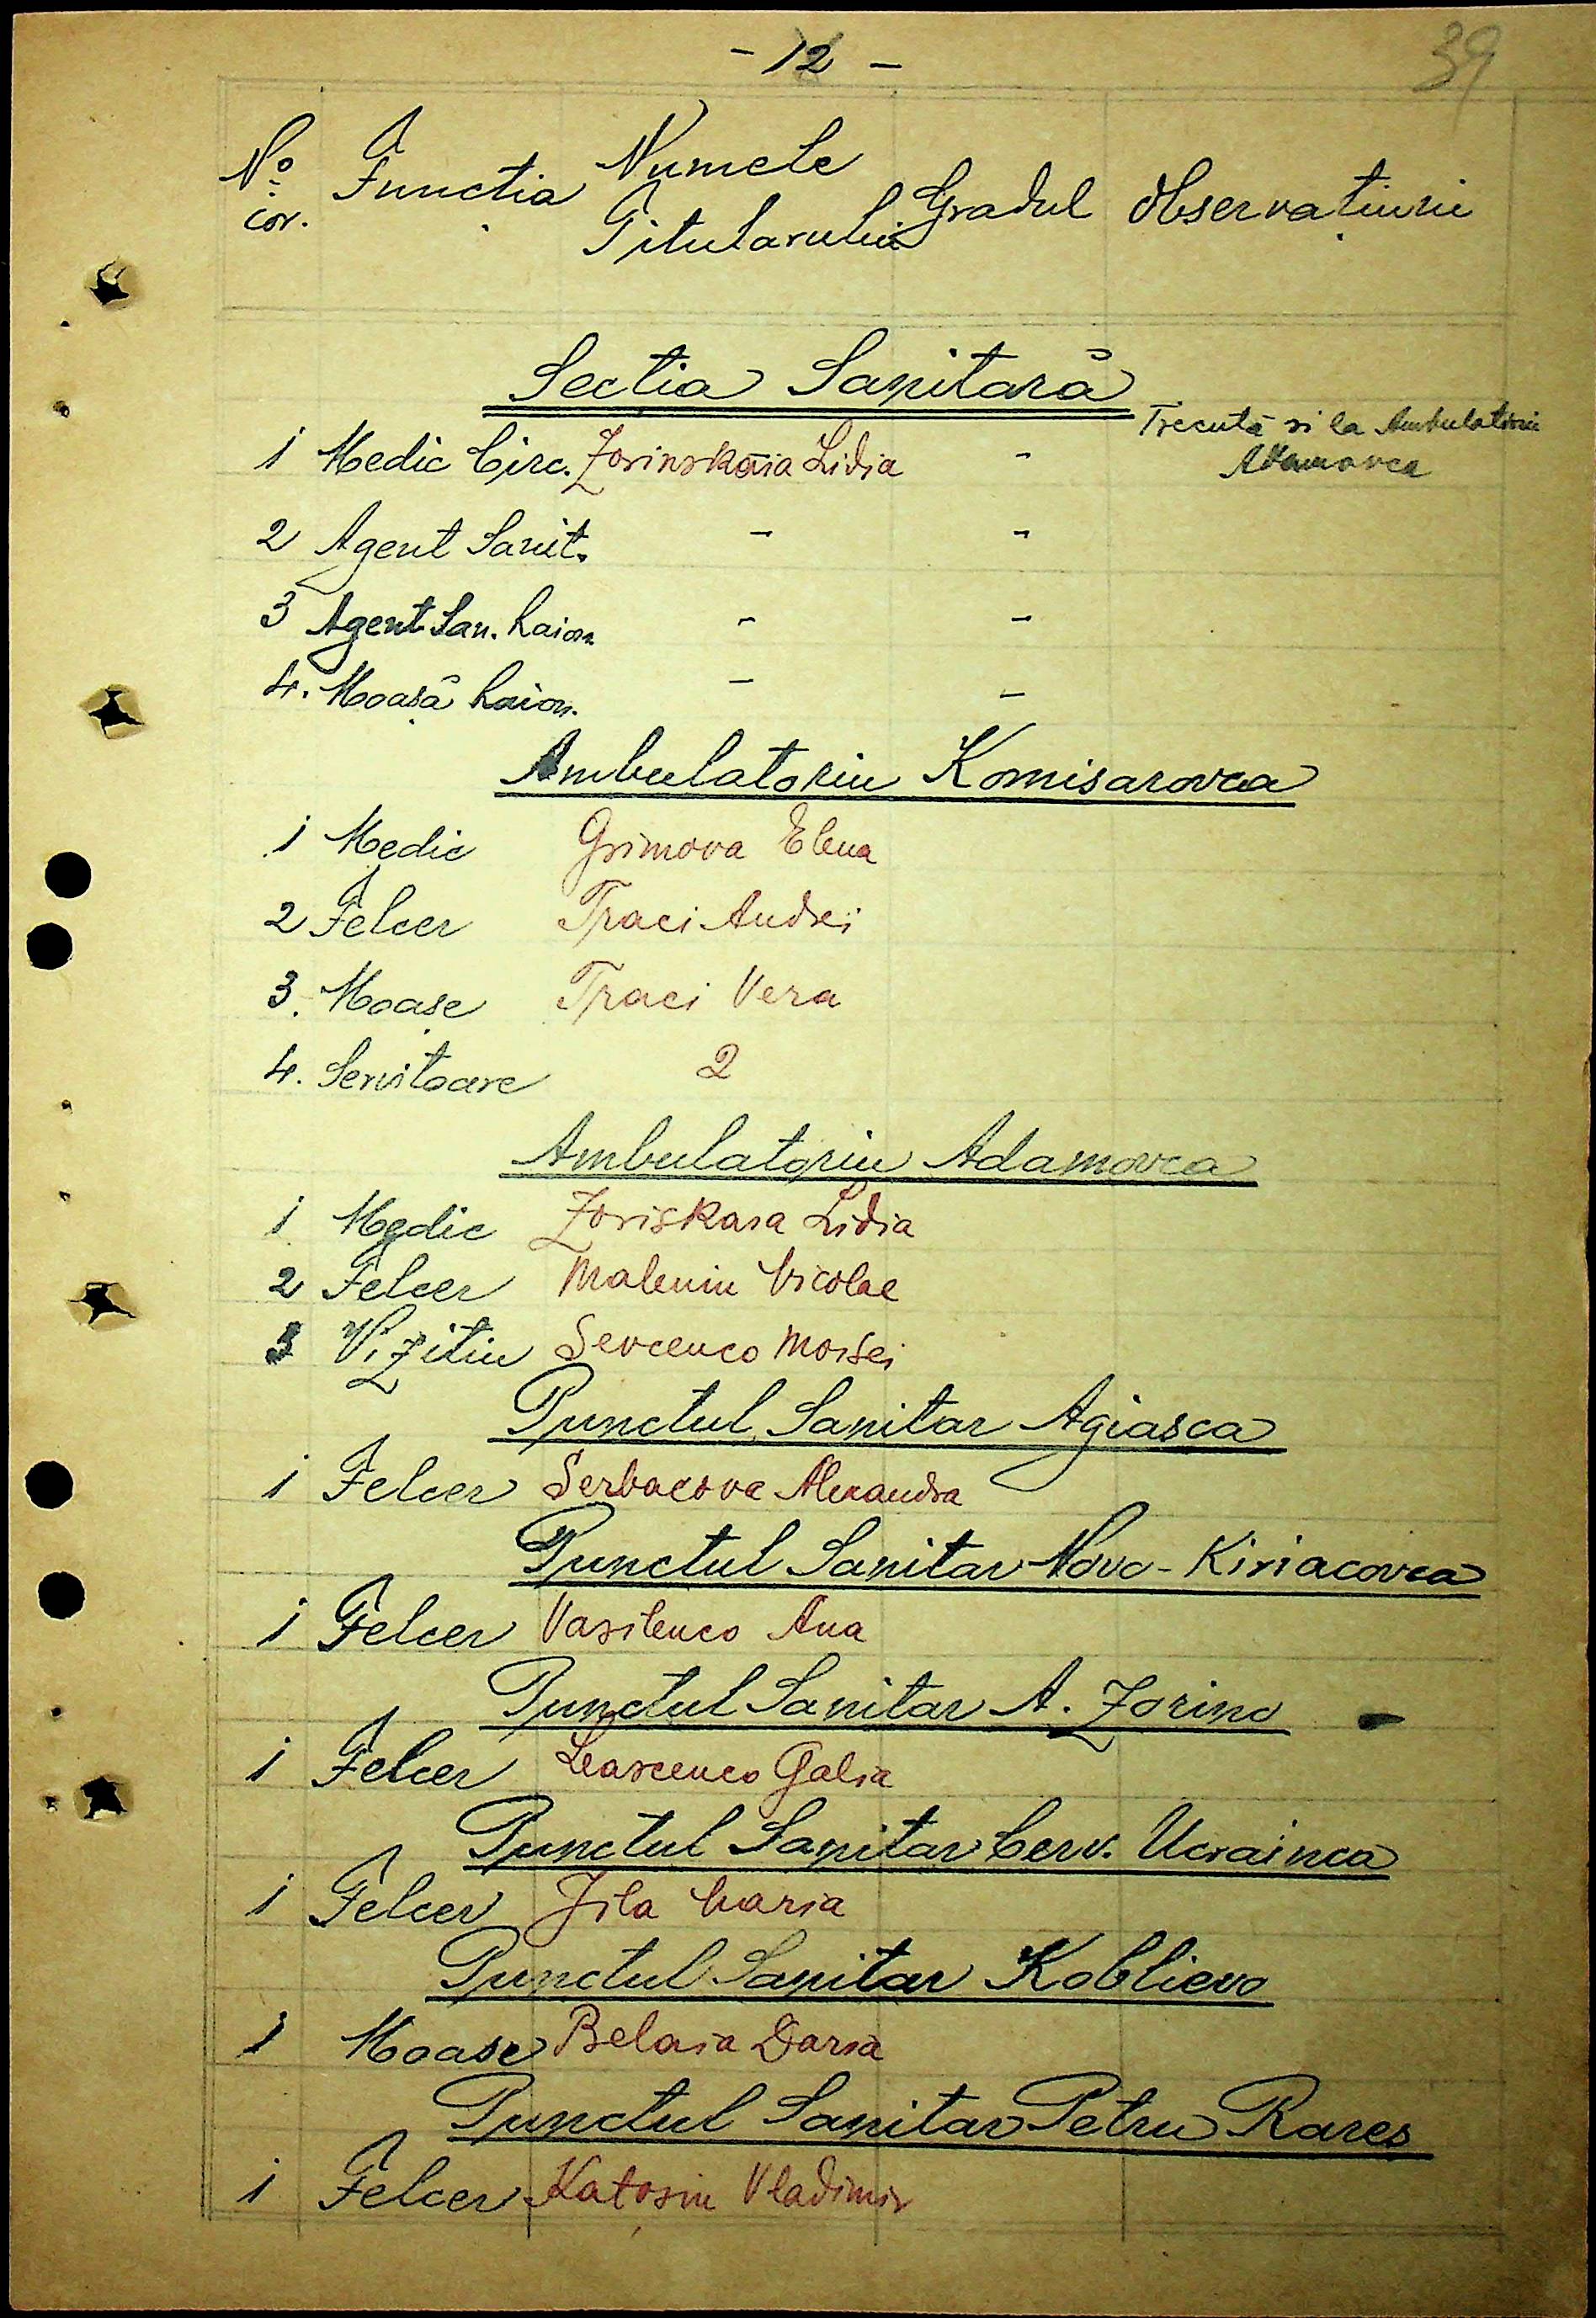 - 12 -
39
No cor. Functia Numele Titularului Gradul Observațiuni
Sectia Sanitară
1 Medic Circ. Zorinskaia Lidia - Trecută si la Ambulatoriu
Adamovca
2 Agent Sanit. - -
3 Agent San. Raion. - -
4. Moașă Raion. - -
Ambulatoriu Komisarovca
1 Medic Grimova Elena
2 Felcer Traci Andrei
3. Moașe Traci Vera
4. Servitoare 2
Ambulatoriu Adamovca
1 Medic Zoriskaia Lidia
2 Felcer Maleniu Nicolae
3 Vizitiu Sevcenco Moisei
Punctul Sanitar Agiasca
1 Felcer Serbacova Alexandra
Punctul Sanitar Novo-Kiriacovca
1 Felcer Vasilenco Ana
Punctul Sanitar A. Zorino
1 Felcer Leascenco Galia
Punctul Sanitar Cerv. Ucrainca
1 Felcer Jila Maria
Punctul Sanitar Koblievo
1 Moașe Belaia Daria
Punctul Sanitar Petru Rares
1 Felcer Katosin Vladimir